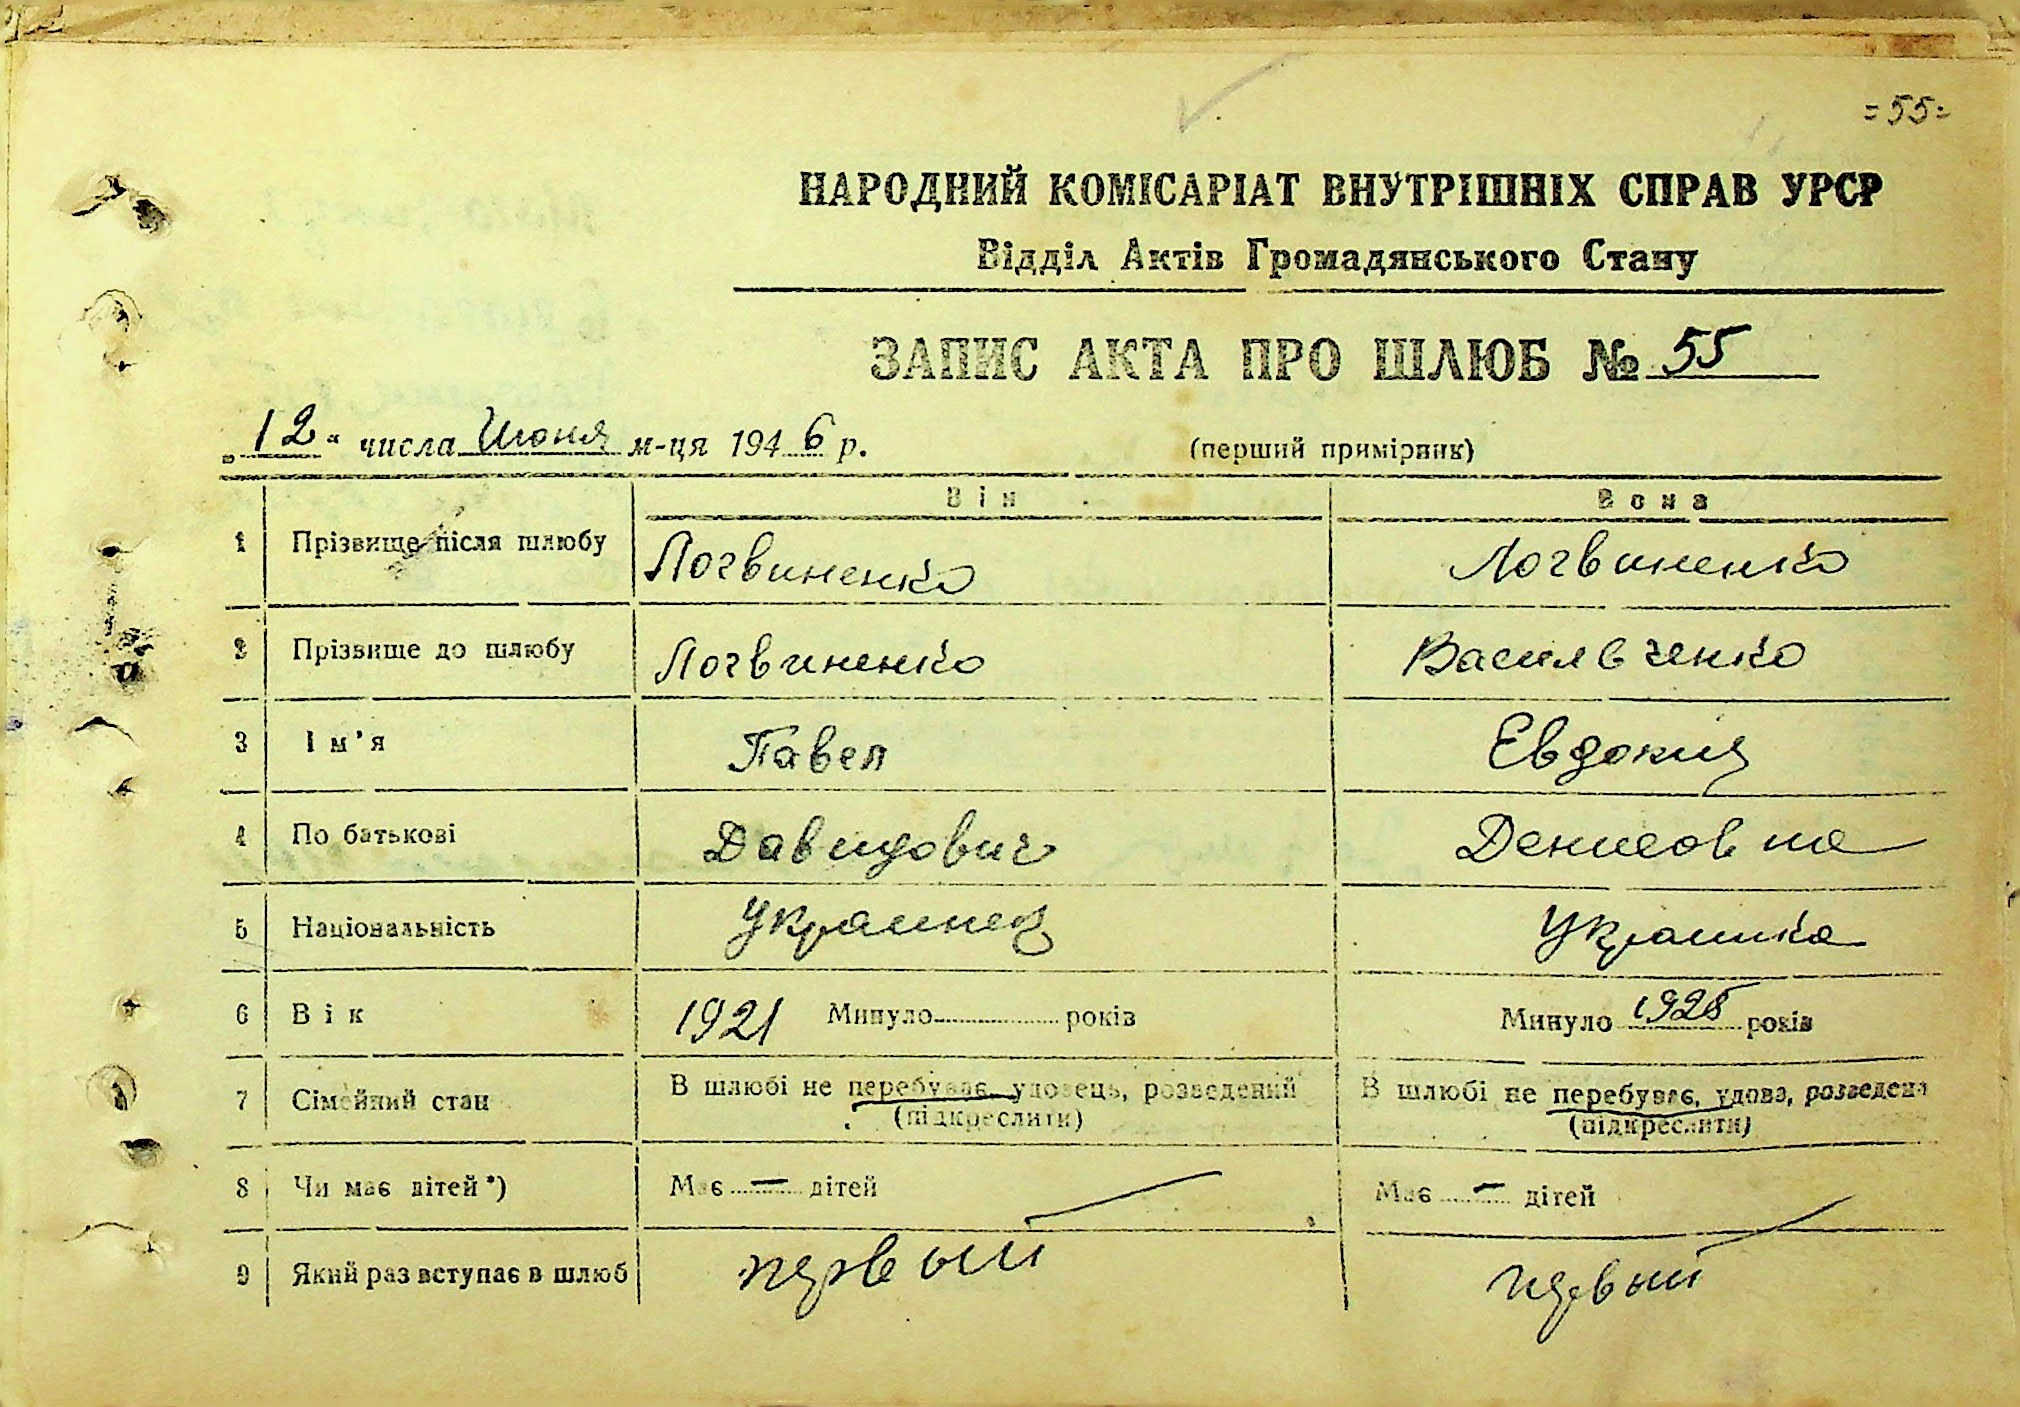 =55=
НАРОДНИЙ КОМІСАРІАТ ВНУТРІШНІХ СПРАВ УРСР
Відділ Актів Громадянського Стану
ЗАПИС АКТА ПРО ШЛЮБ № 55
„12“ числа Июня м-ця 1946 р. (перший примірник)
Він Вона
1 Прізвище після шлюбу Логвиненко Логвиненко
2 Прізвище до шлюбу Логвиненко Васильченко
3 Ім'я Павел Евдокия
4 По батькові Давидович Денисовна
5 Національність Украинец Украинка
6 Вік 1921 Минуло років Минуло 1925 років
7 Сімейний стан В шлюбі не перебуває, удовець, розведений В шлюбі не перебуває, удова, розведена
(підкреслити) (підкреслити)
8 Чи має дітей*) Має — дітей Має — дітей
9 Який раз вступає в шлюб первый первый